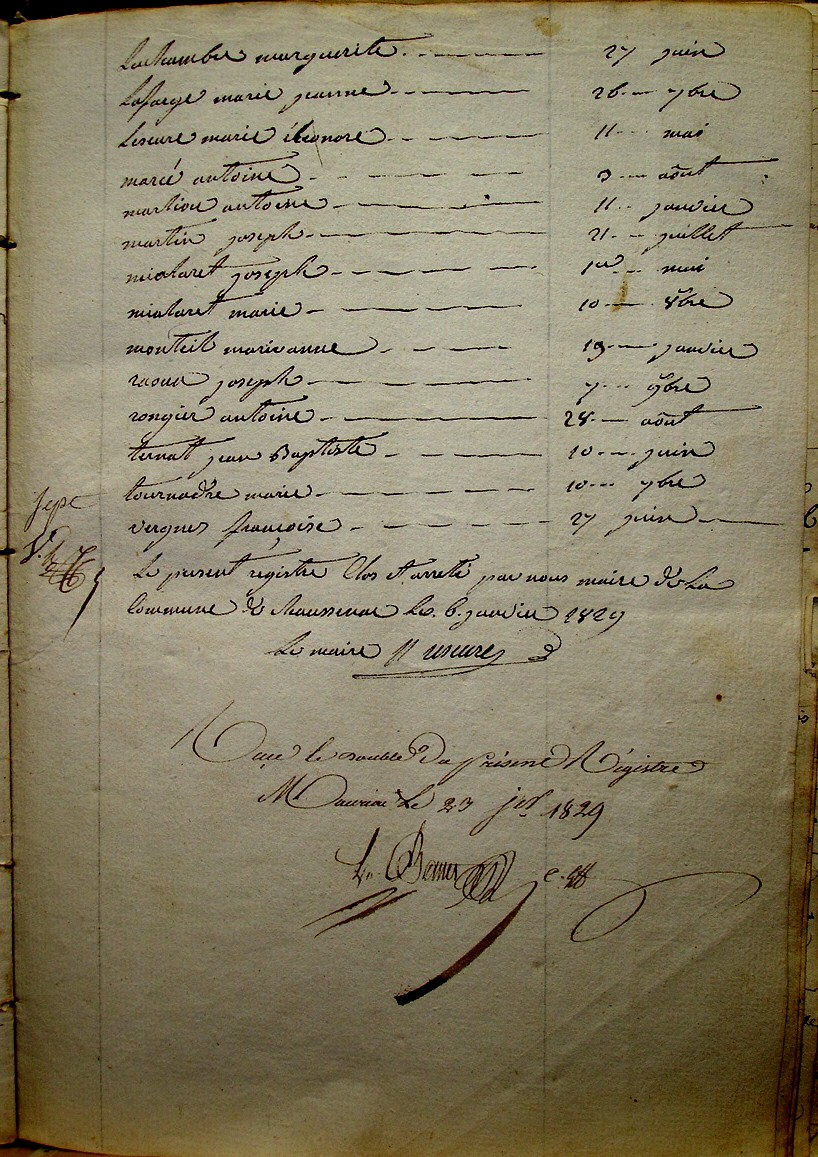 Lachambre marguerite 27 juin
Lafarge marie jeanne 26 7bre
Lescure marie éléonore 11 mai
marcé antoine 3 août
martiou antoine 11 janvier
martin joseph 21 juillet
mialaret joseph 1er mai
mialaret marie 10 8bre
monteil marieanne 19 janvier
raoux joseph 7 9bre
rongier antoine 28 août
ternat jean Baptiste 10 juin
tournadre marie 10 7bre
vergnes françoise 27 juin
Le present régistre Clos et arreté par nous maire de La
Commune de Chaussenac Le 6 janvier 1829
Le maire Lescure
Reçu le double du présent Régistre
Mauriac Le 23 jer 1829